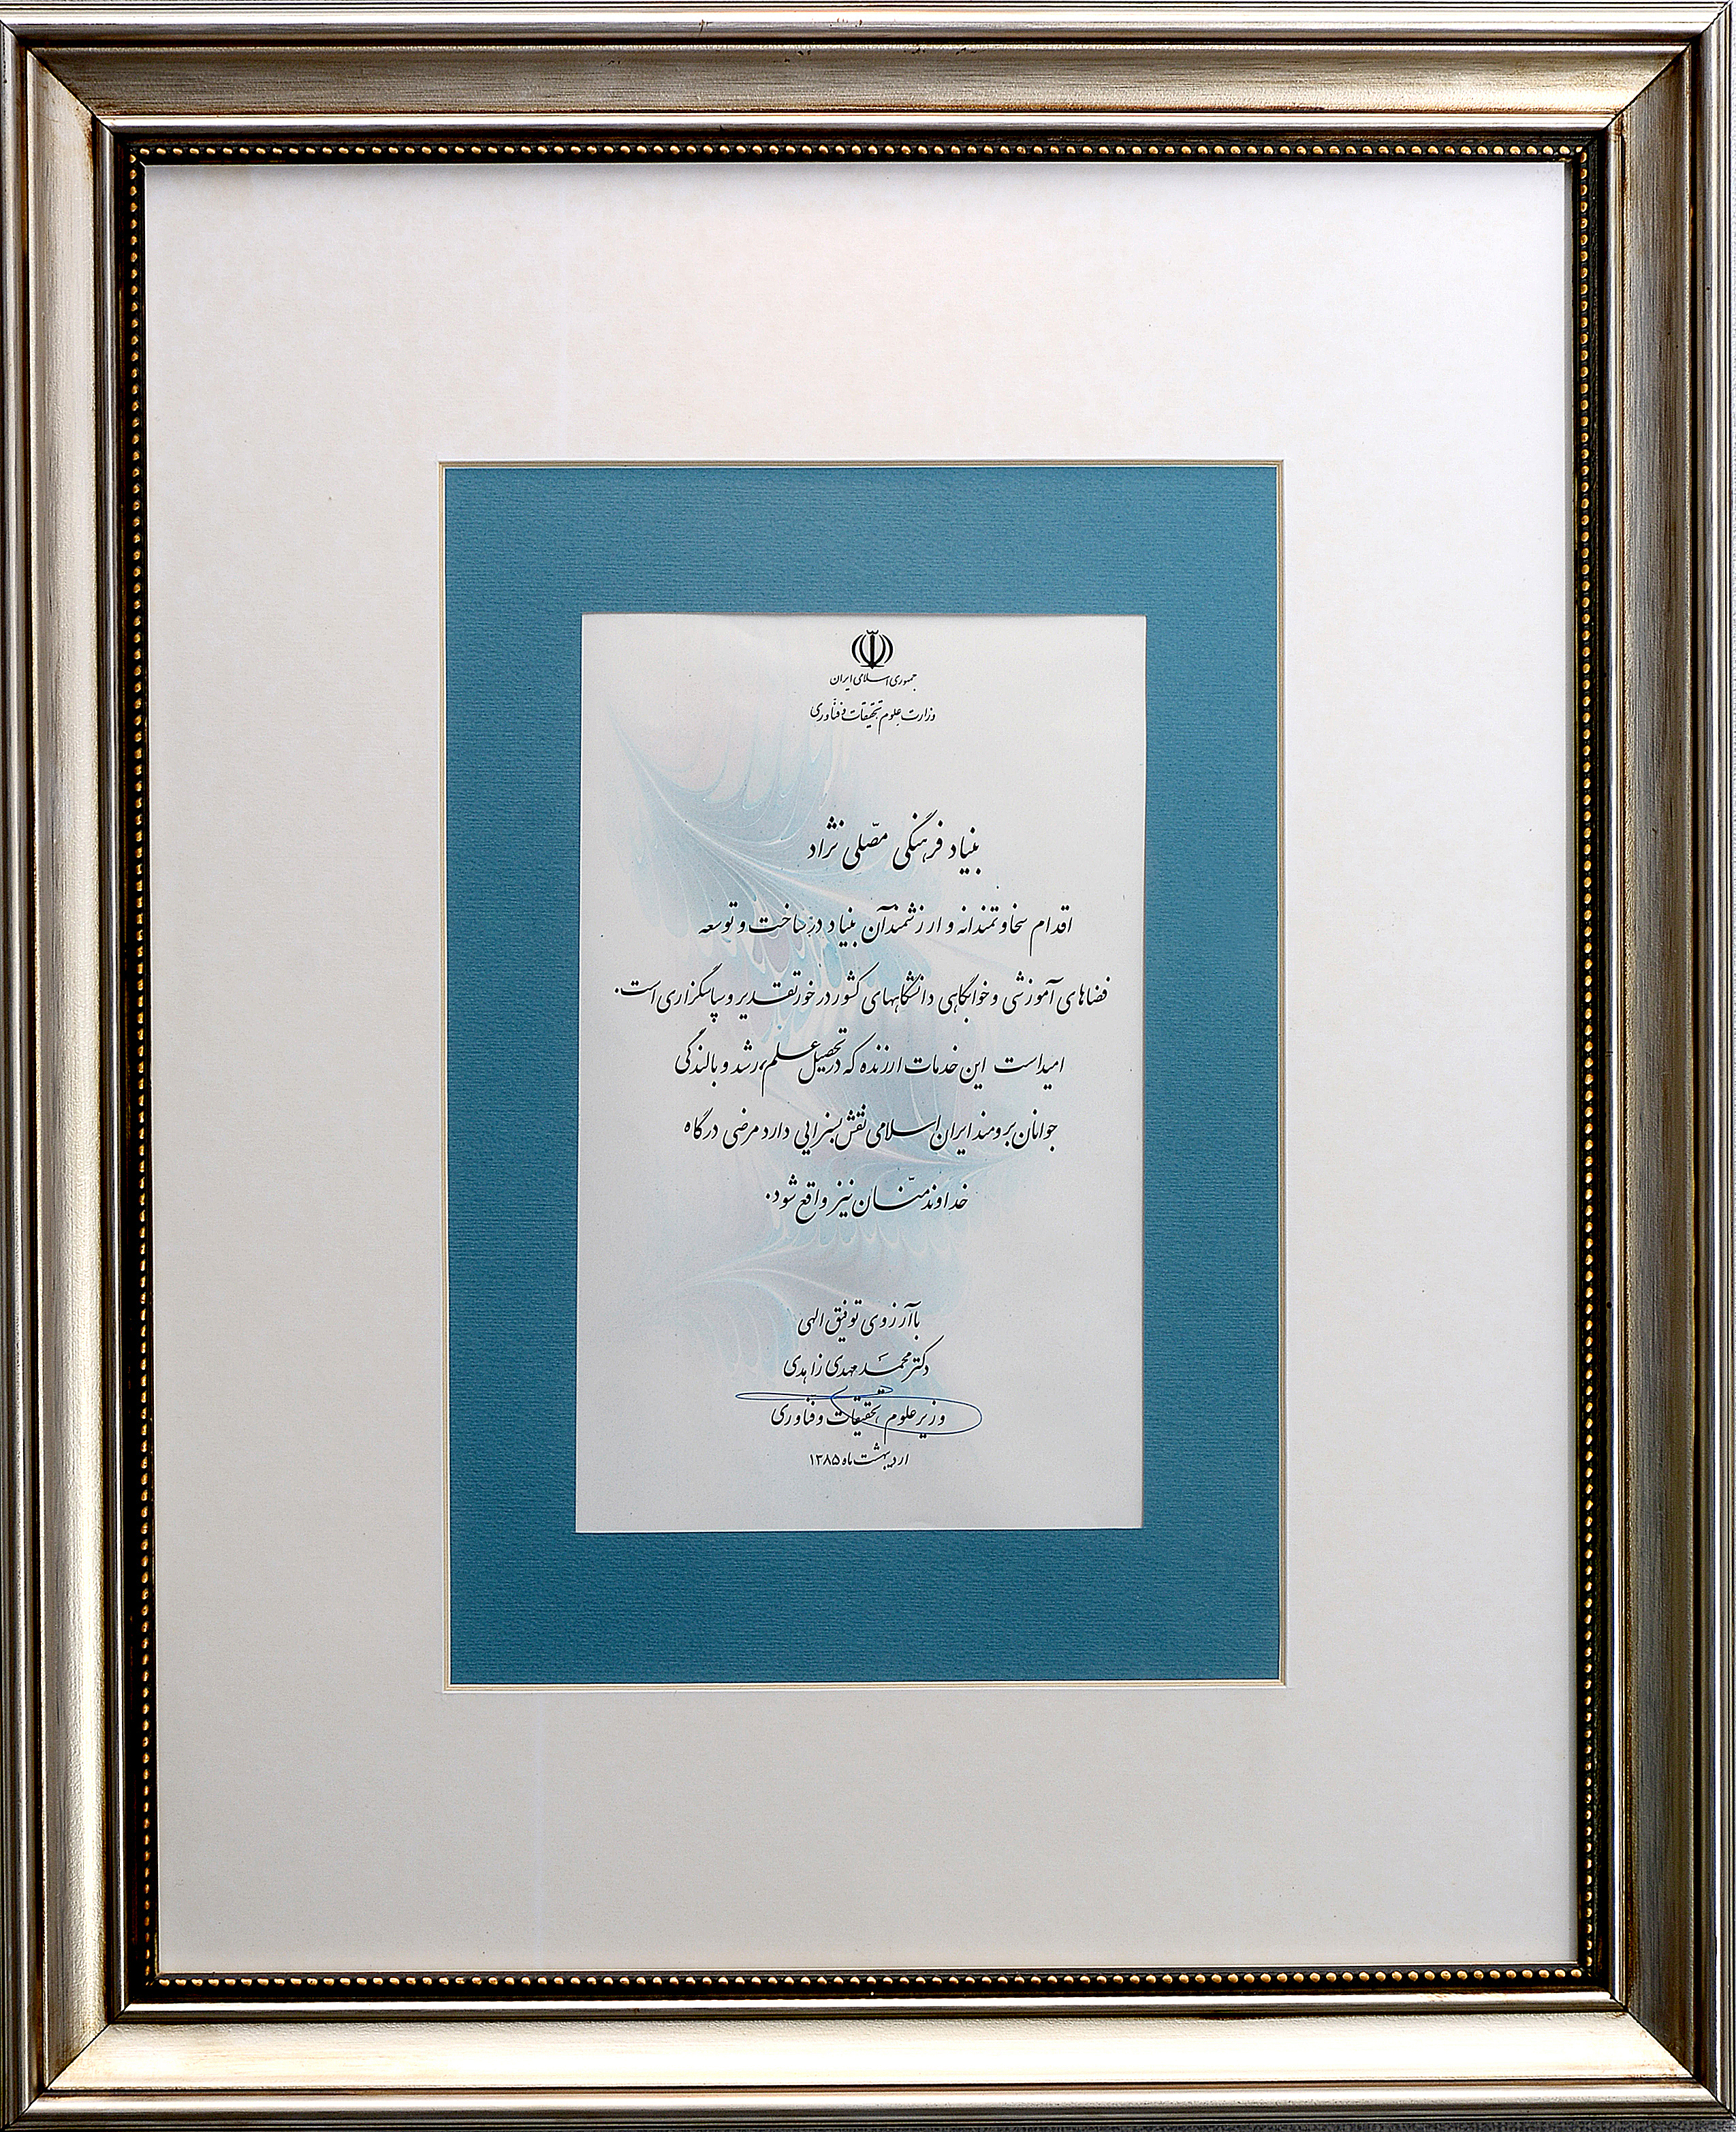 جمهوری اسلامی ایران
وزارت علوم تحقیقات و فنّاوری
بنیاد فرهنگی مصّلی نژاد
اقدام سخاوتمندانه و ارزشمند آن بنیاد در ساخت و توسعه
فضاهای آموزشی و خوابگاهی دانشگاههای کشور در خور تقدیر و سپاسگزاری است.
امید است این خدمات ارزنده که در تحصیل علم، رشد و بالندگی
جوانان برومند ایران اسلامی نقش بسزایی دارد مرضی درگاه
خداوند منّان نیز واقع شود.
با آرزوی توفیق الهی
دکتر محمد مهدی زاهدی
وزیر علوم تحقیقات و فنّاوری
اردیبهشت ماه ۱۳۸۵